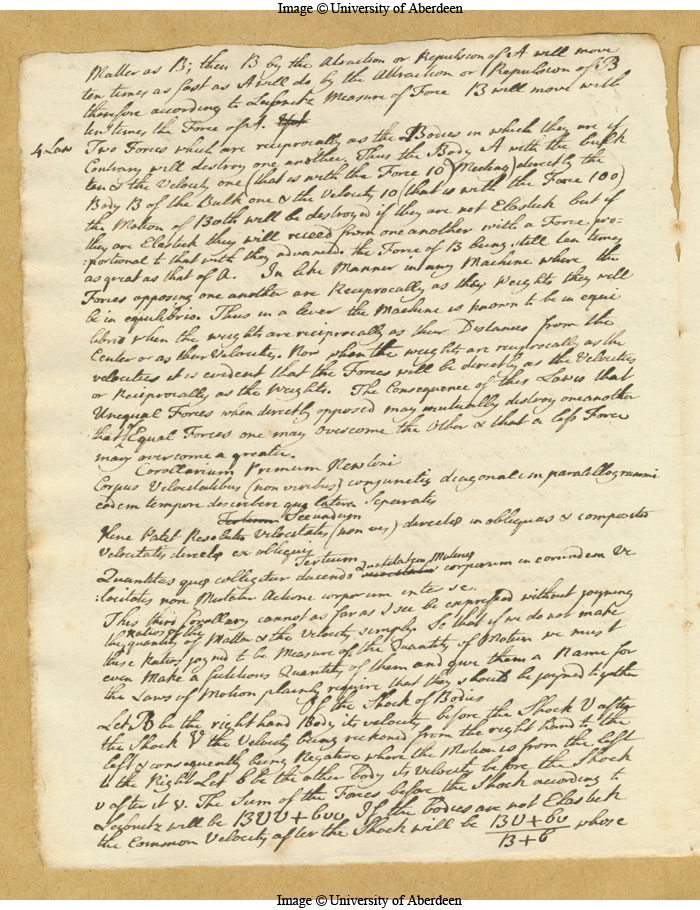 Image © University of Aberdeen
Matter as B; then B by the Atraction or Repulsion of A will move
ten times as fast as A will do by the Attraction or Repulsion of B
therefore according to Leibnitz Measure of Force B will move with
ten times the Force of A.
4 Law Two Forces which are reciprocally as the Bodies in which they are if
Contrary will destroy one another. Thus the Body A with the bulk
ten & the Velocity one (that is with the Force 10) Meeting directly the
Body B of the Bulk one & the Velocity 10 (that is with the Force 100)
the Motion of Both will be destroyed if they are not Elastick but if
they are Elastick they will receed from one another with a Force pro=
=portional to that with they advanced the Force of B being still ten times
as great as that of A. In like Manner in any Machine where the
Forces opposing one another are Reciprocally as they Weights they will
be in equilibrio. Thus in a lever the Machine is known to be in equi
librio when the weights are reciprocally as their Distances from the
Center or as their Velocity. Now when the weights are reciprocally as the
velocities it is evident that the Forces will be directly as the Velocities
or Reciprocally as the Weights. The Consequence of this Law is that
Unequal Forces when directly opposed may mutually destroy one another
that of Equal Forces one may overcome the Other & that a less Force
may overcome a greater.
Corollarium Primum Newtoni
Corpus Velocitatibus (non viribus) conjunctis diagonalem paralellogrammi
eodem tempore describere quo latera Separatis
Secundum
Hinc Patet Resolutio Velocitatis (non vis) directæ in obliquas & compositio
Velocitatis directæ ex obliquis
Tertium
Quantitas quæ colligitur ducendo Quantitatem Materiæ corporum in eorundem Ve
=locitates non Mutatur Actione corporum inter se.
This third Corollary cannot as far as I see be expressed without joyning
the ratios of the quantity of Matter & the Velocity simply. So that if we do not make
these Ratios joynd to be Measure of the Quantity of Motion we must
even Make a fictitious Quantity of them and give them a Name for
the Laws of Motion plainly require that they should be joyned together
Of the Shock of Bodies
Let B be the right hand Body its velocity before the Shock U after
the Shock V the Velocity being reckoned from the right hand to the
left & consequently being Negative where the Motion is from the left
to the Right Let b be the other body its Velocity before the Shock
υ after it v. The Sum of the Forces before the Shock according to
Leibnitz will be BUU + bυυ. If the Bodies are not Elastick
the Common Velocity after the Shock will be BU + bυ / B + b whose
Image © University of Aberdeen